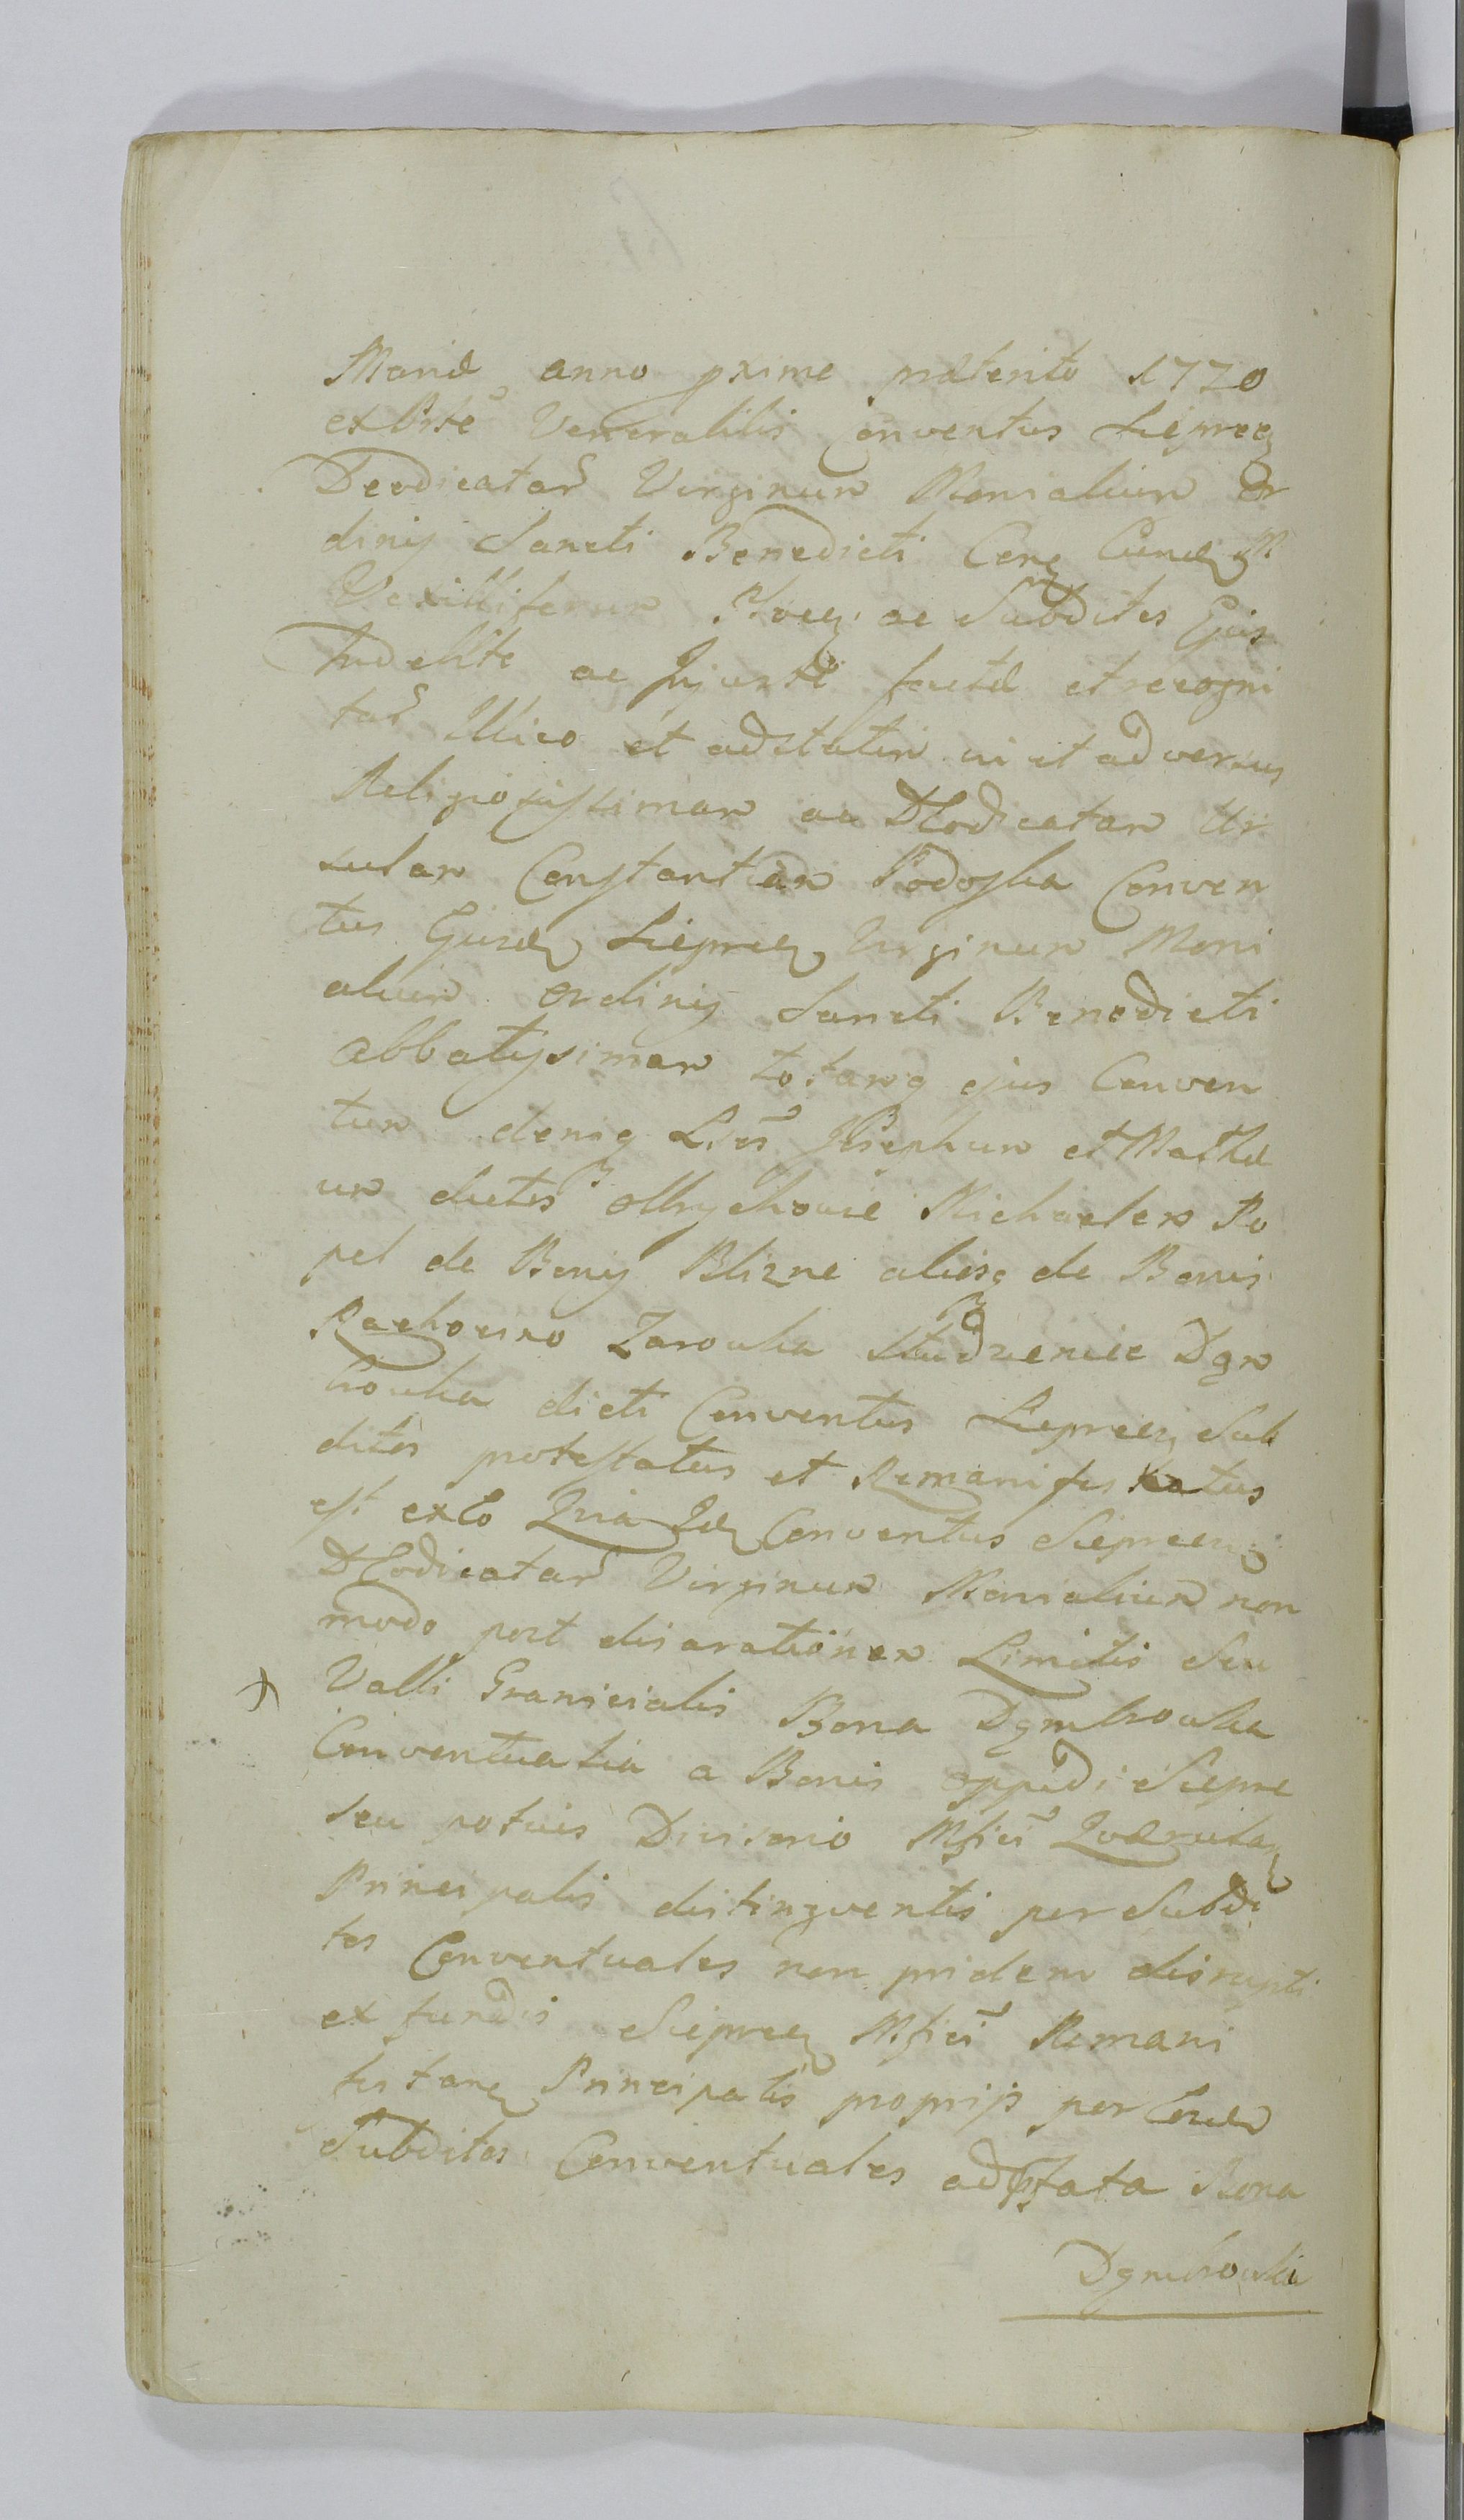 Mariæ anno pxime præterito 1770
ex Prte Venerabilis Conventus Sieprcen
Deodicatar Virginum Monialium Or
dinis Sancti Benedicti Cong M
Vexilliferum Plocen ac Subditos Ejus
Indebite ac Injuste factæ et recogni
tar Illico et adstatim vi et adversus
Religiosissimam ac DEodicatam Ur
sulam Constantiam Podoska Conven
tus Ejusd Sieprcen Virginum Moni
alium Ordinis Sancti Benedicti
Abbatissimam totamq ejus Conven
tum deniq Josephum et Mathæ
um dictos Olbrychowie Michaelem Po
pel de Bonis Blizne aliosq de Bonis
Rachocino Zarowka Studzeniec Dgm
bowka dicti Conventus Sieprcen Sub
ditos protestatus et Remanifestatus
est exEo Quia Id Conventus Sieprcen
DEodicatar Virginum Monialium non
modo post disarationem Limitis Seu
Valli Granicialis Bona Dgmbowka
Conventualia a Bonis Oppidi Sieprc
seu potius Divisorio Mfici Quærulan
Principalis distinguentis per Subdi
tos Conventuales non pridem disrupti
ex fundis Sieprcen Mfici Remani
festan Principalis proprijs per Eosd
Subditos Conventuales ad Bona
Dgmbowka